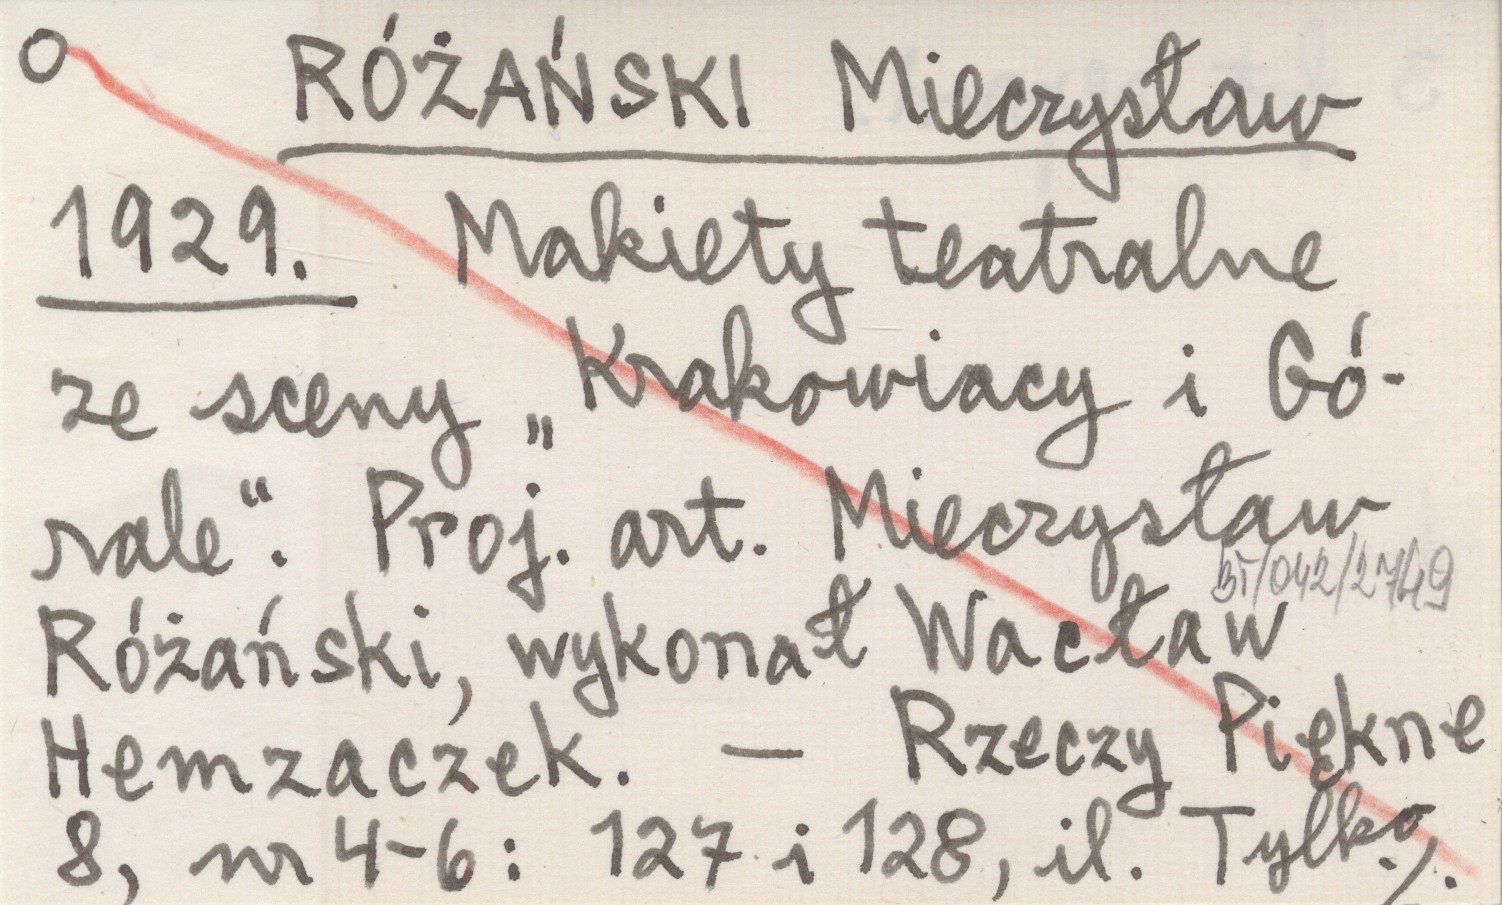 O RÓŻAŃSKI Mieczysław
1929. Makiety teatralne
ze sceny „Krakowiacy i Gó-
rale“. Proj. art. Mieczysław
BT/042/2749
Różański, wykonał Wacław
Hemzaczek. — Rzeczy Piękne
8, nr 4-6: 127 i 128, il. Tylko ./.